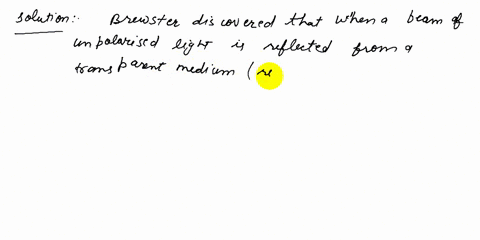 Solution:- Brewster discovered that when a beam of
unpolarised light is reflected from a
transparent medium (re